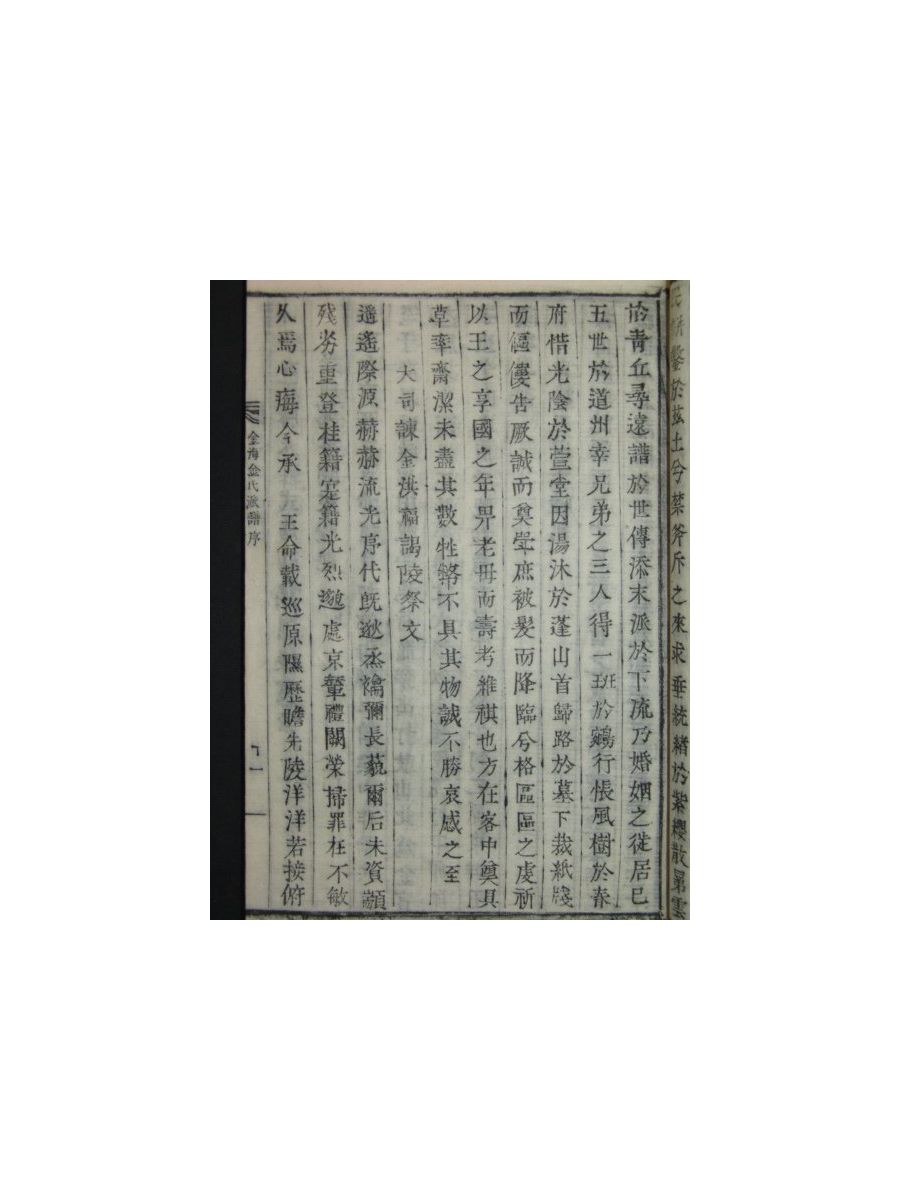 鑿於玆土兮禁斧斤之來求垂統緖於紫纓散
於靑丘尋遠譜於世傳添末派於下流乃婚姻之徙居已
五世於道州幸兄弟之三人得一班於鵷行悵風樹於春
府惜光陰於萱堂因湯沐於蓬山首歸路於墓下裁紙牋
而傴僂告厥誠而奠斝庶被髮而降臨兮格區區之虔祈
以王之享國之年畀老母而壽考維祺也方在客中奠具
草率齋潔未盡其數牲幣不具其物誠不勝哀感之至
大司諫金洪福謁陵祭文
遙遙際源赫赫流光序代旣逖烝禴彌長藐爾后末資顓
殘劣重登桂籍寔籍光烈邈處京輦禮闕榮掃罪在不敏
久焉心痗今承 王命載巡原隰歷瞻先陵洋洋若接俯
金海金氏派譜序
十一